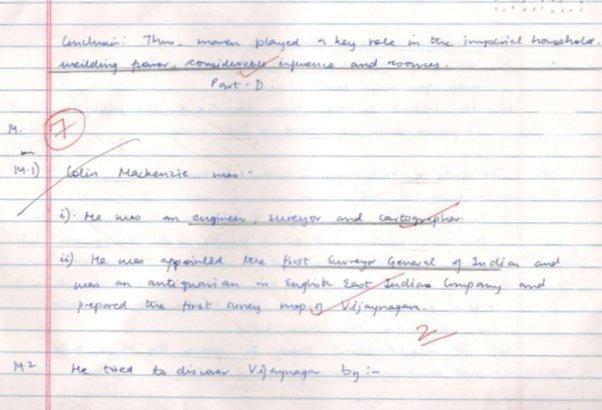 Conclusion: Thus, women played a key role in the imperial household.
weilding power, considerable influence and resources.
Part-D.
7
14.1) Colin Mackenzie was:-
i). He was an engineer, surveyor and cartographer.
ii). He was appointed the first Surveyor General of Indian and
was an antiquarian in English East Indian Company and
prepared the first survey map of Vijaynagara.
2
14.2 He tried to discover Vijaynagar by:-